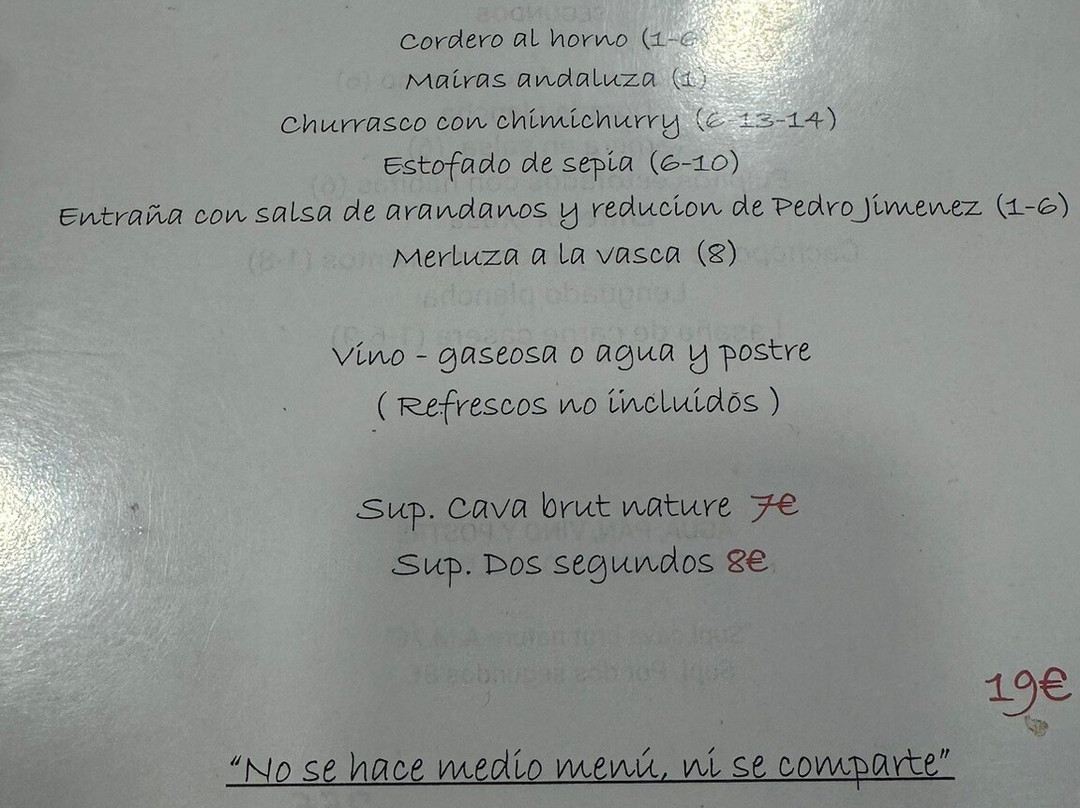 Cordero al horno (1-6
Maíras andaluza (1)
Churrasco con chimichurry (6-13-14)
Estofado de sepia (6-10)
Entraña con salsa de arandanos y reducion de Pedro Jimenez (1-6)
Merluza a la vasca (8)
Vino - gaseosa o agua y postre
( Refrescos no incluidos )
Sup. Cava brut nature 7€
Sup. Dos segundos 8€
19€
"No se hace medio menú, ni se comparte"